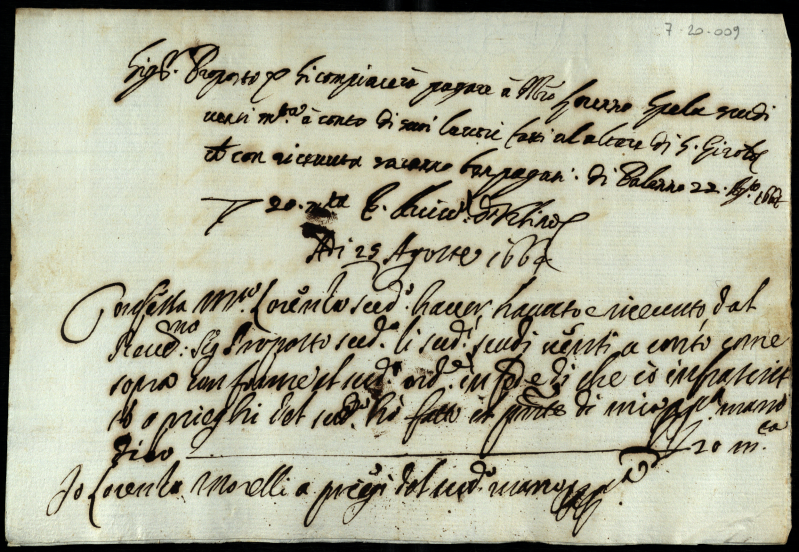 7-20-009
Sig.r Proposto si compiacerà pagare à M.ro Lorenzo scudi
venti m.ta à conto di suoi lavori fatti al altare di S. Girol.
con ricevuta saranno ben pagati. di 22. Ag.to 166
20. m.ta
Adi 25 Agosto 166
Confessa M.ro Lorenzo sud.o haver havuto e ricevuto dal
Rev.mo Sig. Proposto sud.o li sud.i scudi venti a conto come
sopra conforme al sud.o ord.e in p.e di che io infrascrit
to a prieghi del sud.o hò fatto la p.nte di mia p.a mano
dico 20 m.ta
Io Lorenzo Morelli a prieghi del sud.o mano pp.a